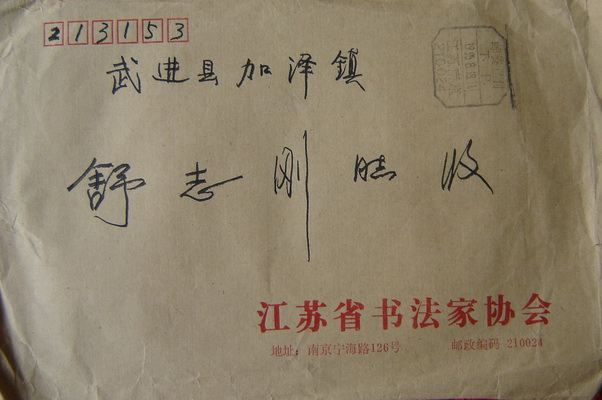 213153
武进县加泽镇
舒志刚 收
江苏省书法家协会
地址：南京宁海路126号 邮政编码 210024